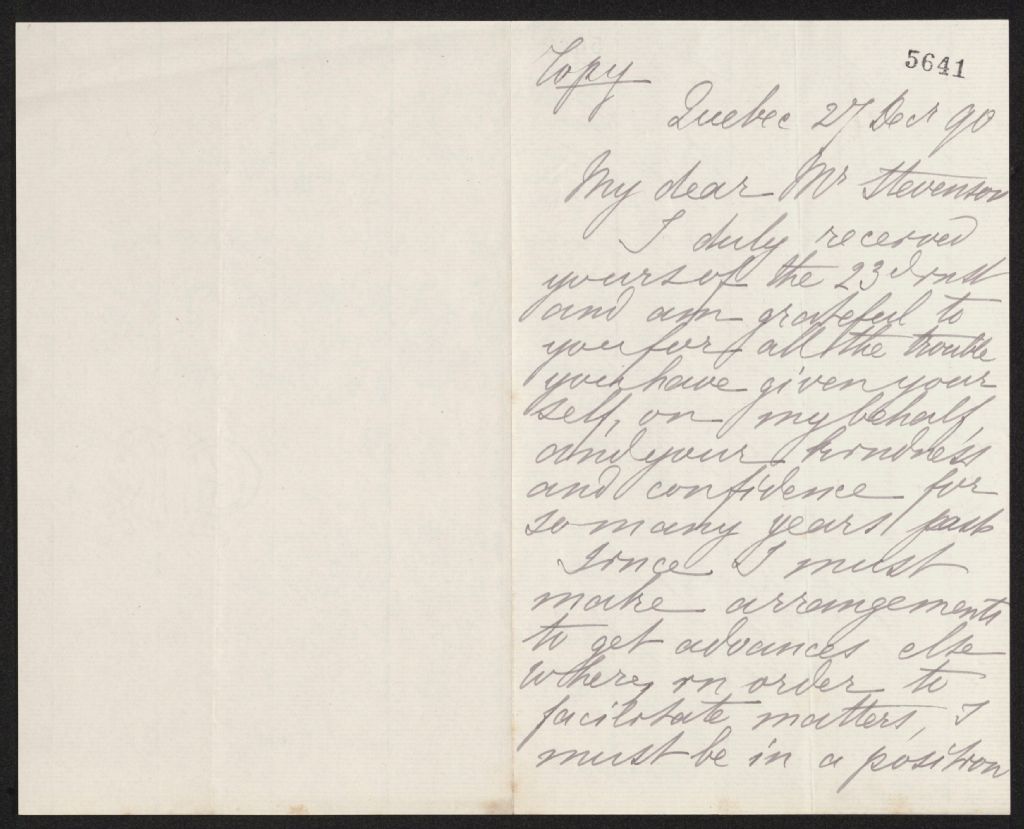 Copy
5641
Quebec 27 Decr 90
My dear Mr Stevenson
I duly received
yours of the 23d inst
and am grateful to
you for all the trouble
you have given your
self, on my behalf,
and your kindness
and confidence for
so many years past
Since I must
make arrangements
to get advances else
where, in order to
facilitate matters, I
must be in a position